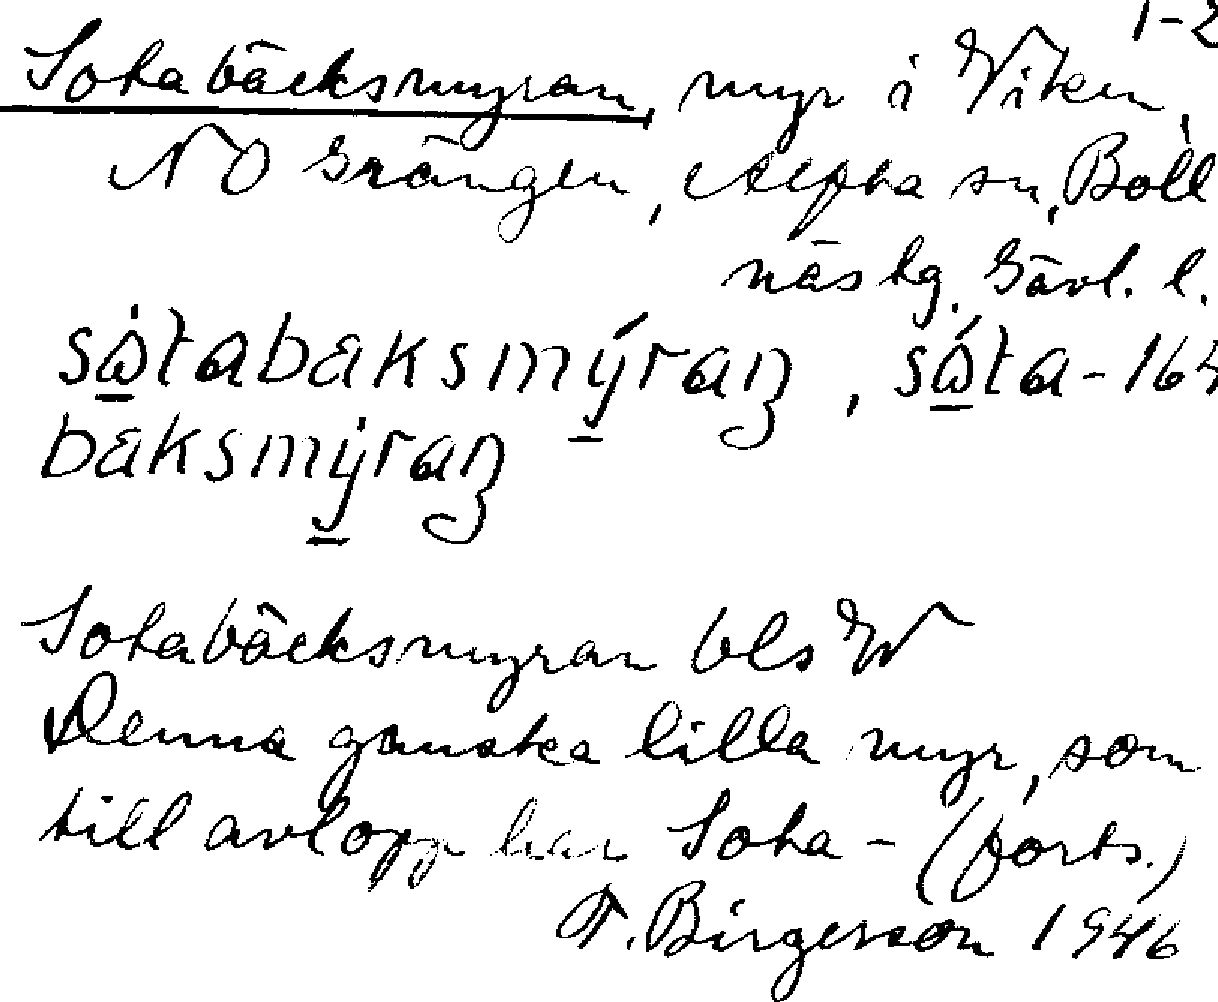 1-2
Sotabäcksmyran, myr i Viken,
NO Grängen, Alfta sn, Boll
näs tg. Gävl. l.
sω̇tabaksmýraŋ, sώta- 164
baksmẏraŋ
Sotabäcksmyran bls W
Denna ganska lilla myr, som
till avlopp har Sota- (forts.)
T. Birgerson 1946